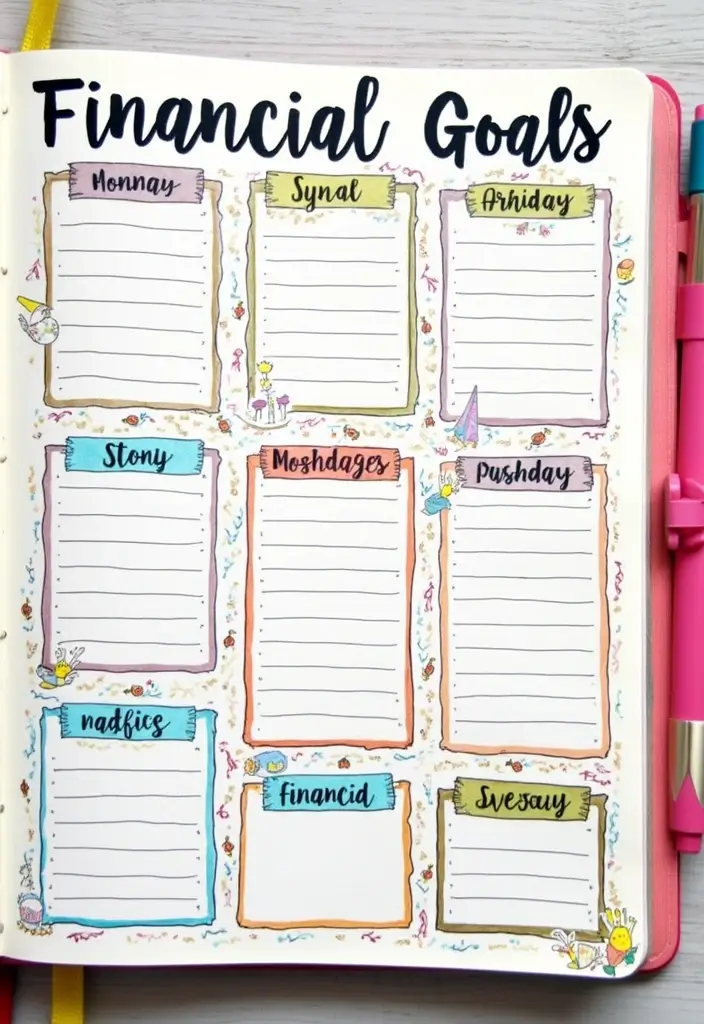 Financial Goals
Monnay
Synal
Arhiday
Stony
Moshdages
Pushday
nadfics
Financid
Svesauy